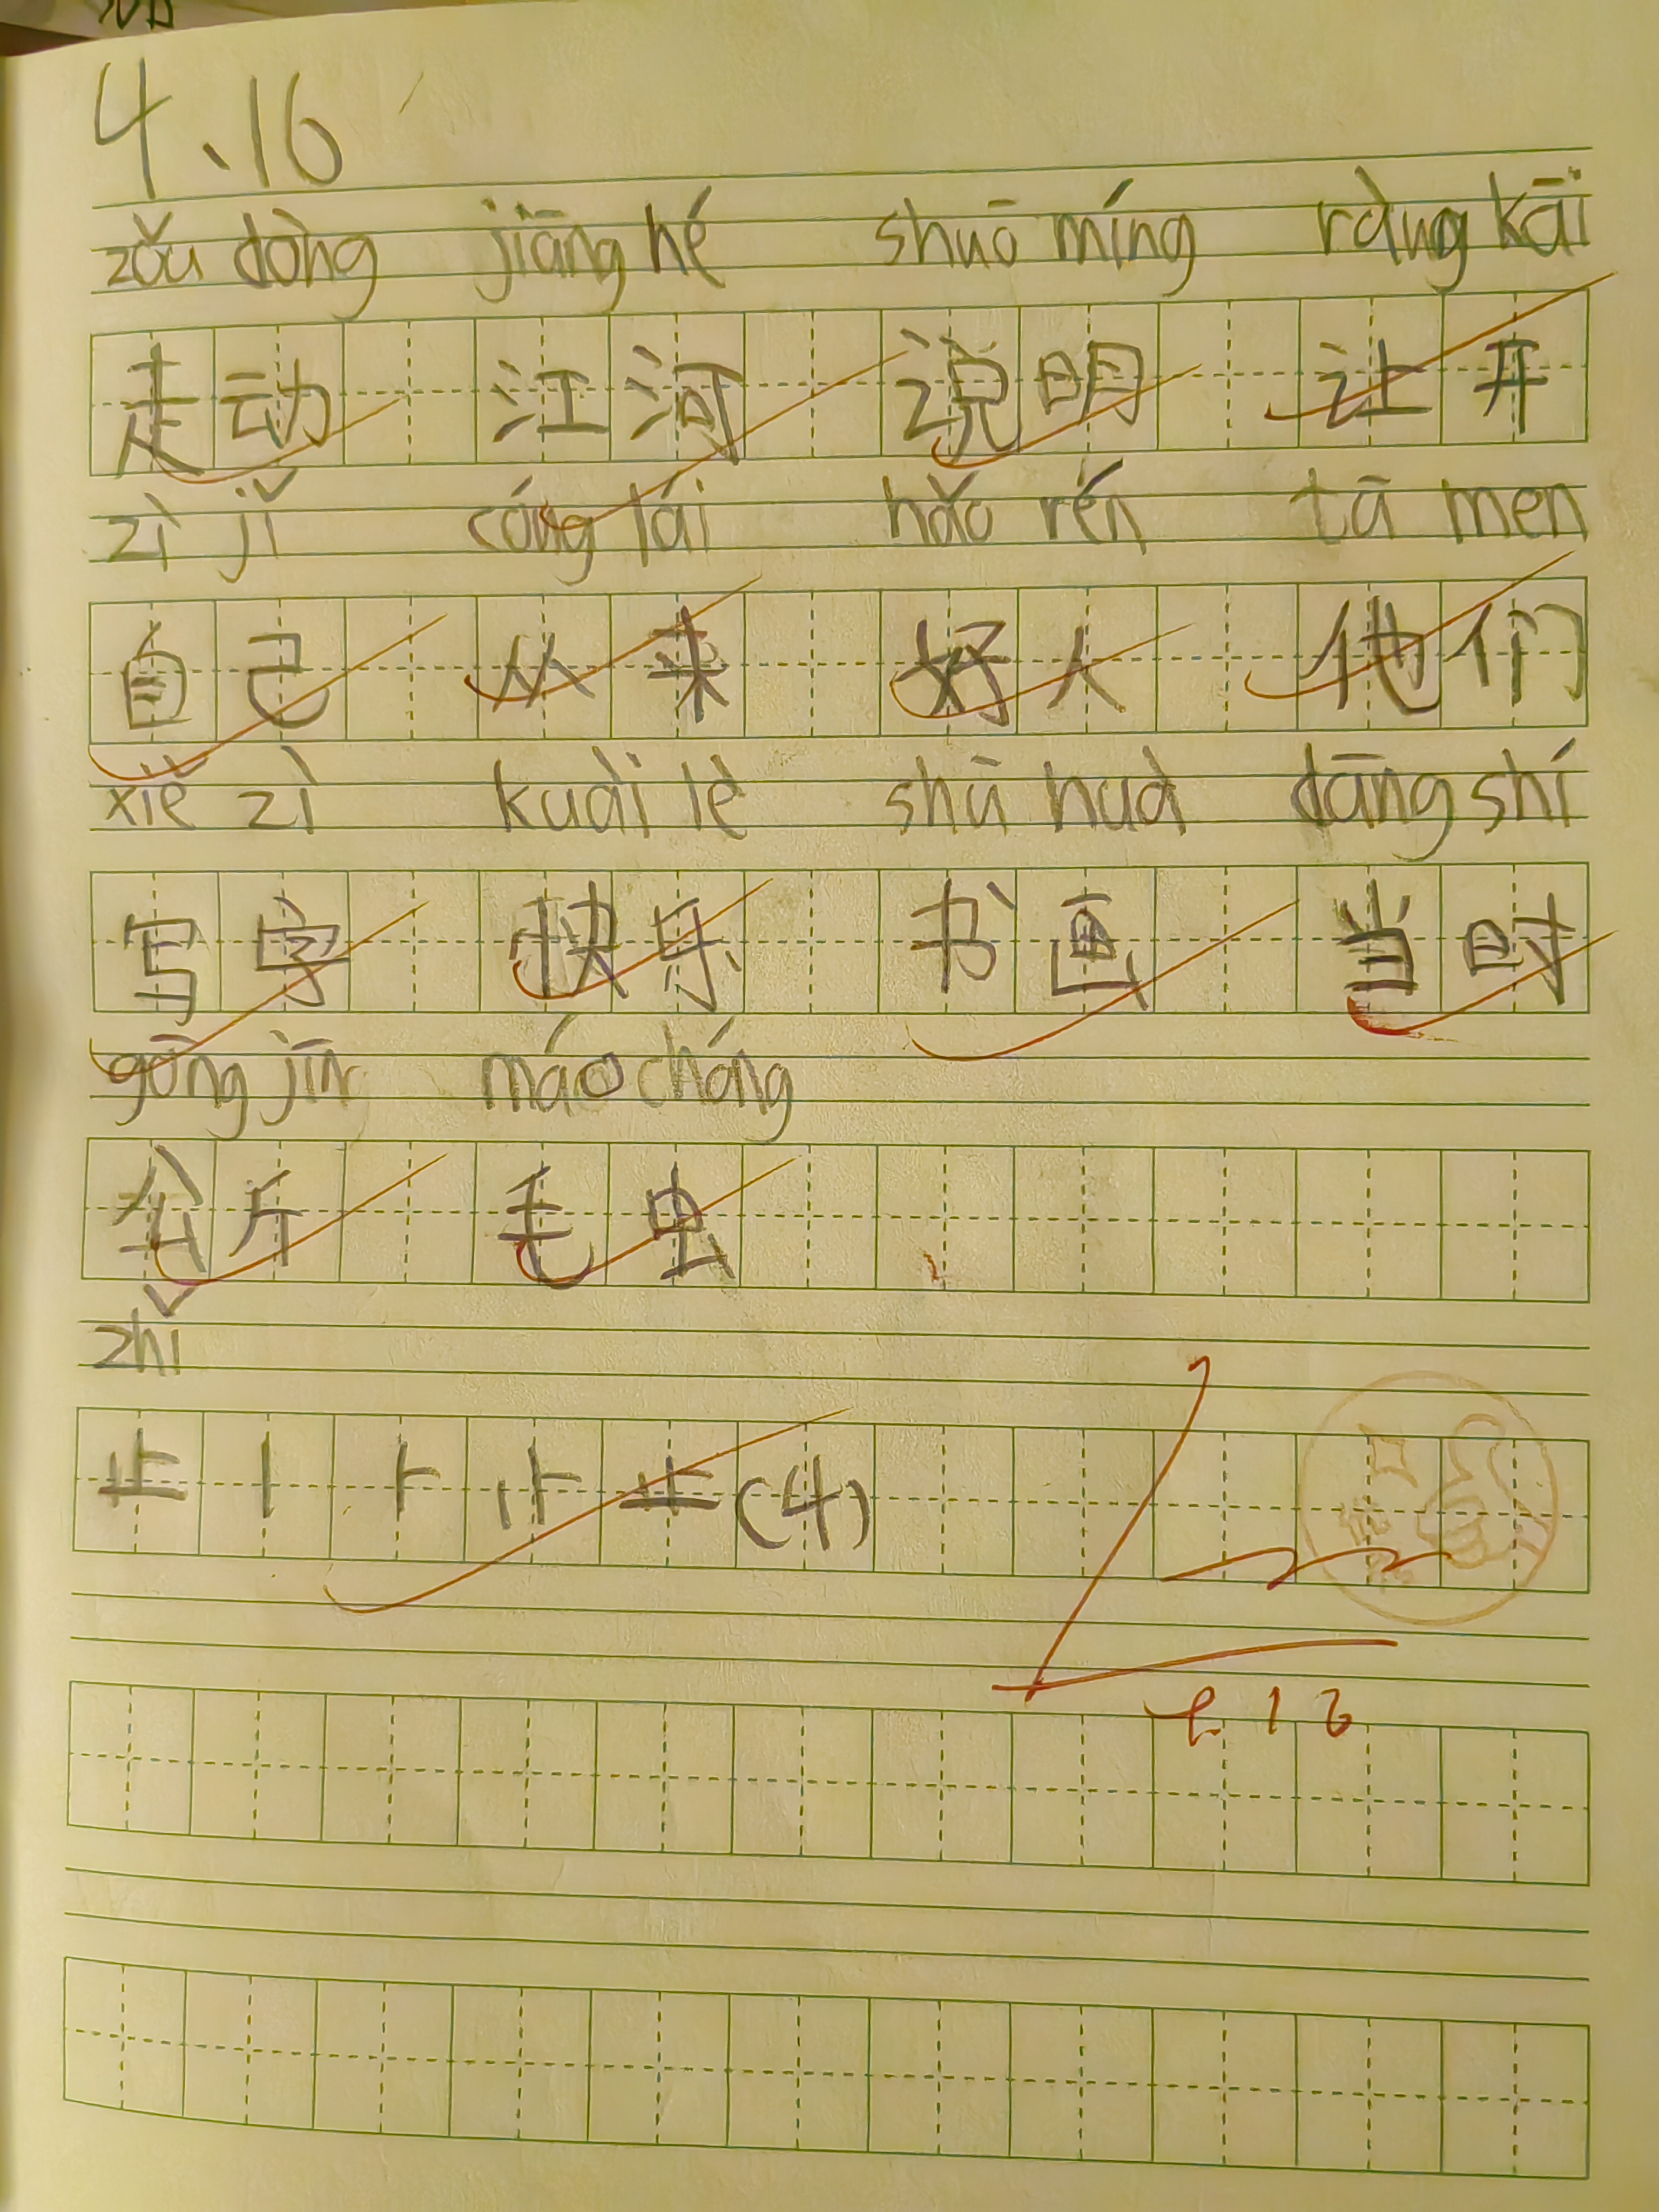 4、16
zǒu dòng jiāng hé shuō míng ràng kāi
走动 江河 说明 让开
zì jǐ cóng lái hǎo rén tā men
自己 从来 好人 他们
xiě zì kuài lè shū huà dāng shí
写字 快乐 书画 当时
gōng jīn máo chóng
公斤 毛虫
zhǐ
止 丨 ⺊ 止 (4)
4.16